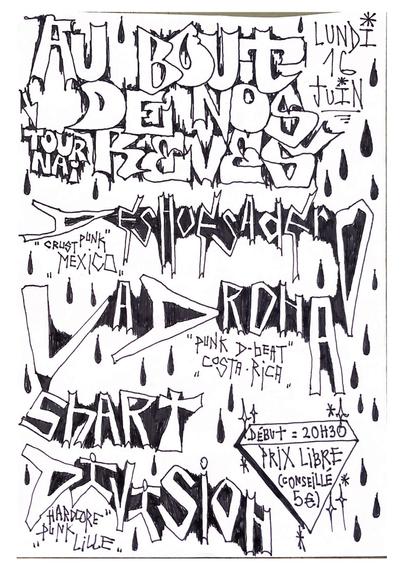 AU BOUT
DE NOS
REVES
LUNDI
16
JUIN
TOUR
NAT
DESHUESADERO
"CRUST PUNK"
"MEXICO"
VADROHA
"PUNK D-BEAT"
"COSTA-RICA"
SHART
DIVISION
"HARDCORE
PUNK"
LILLE"
DÉBUT = 20H30
PRIX LIBRE
(CONSEILLÉ
5€)